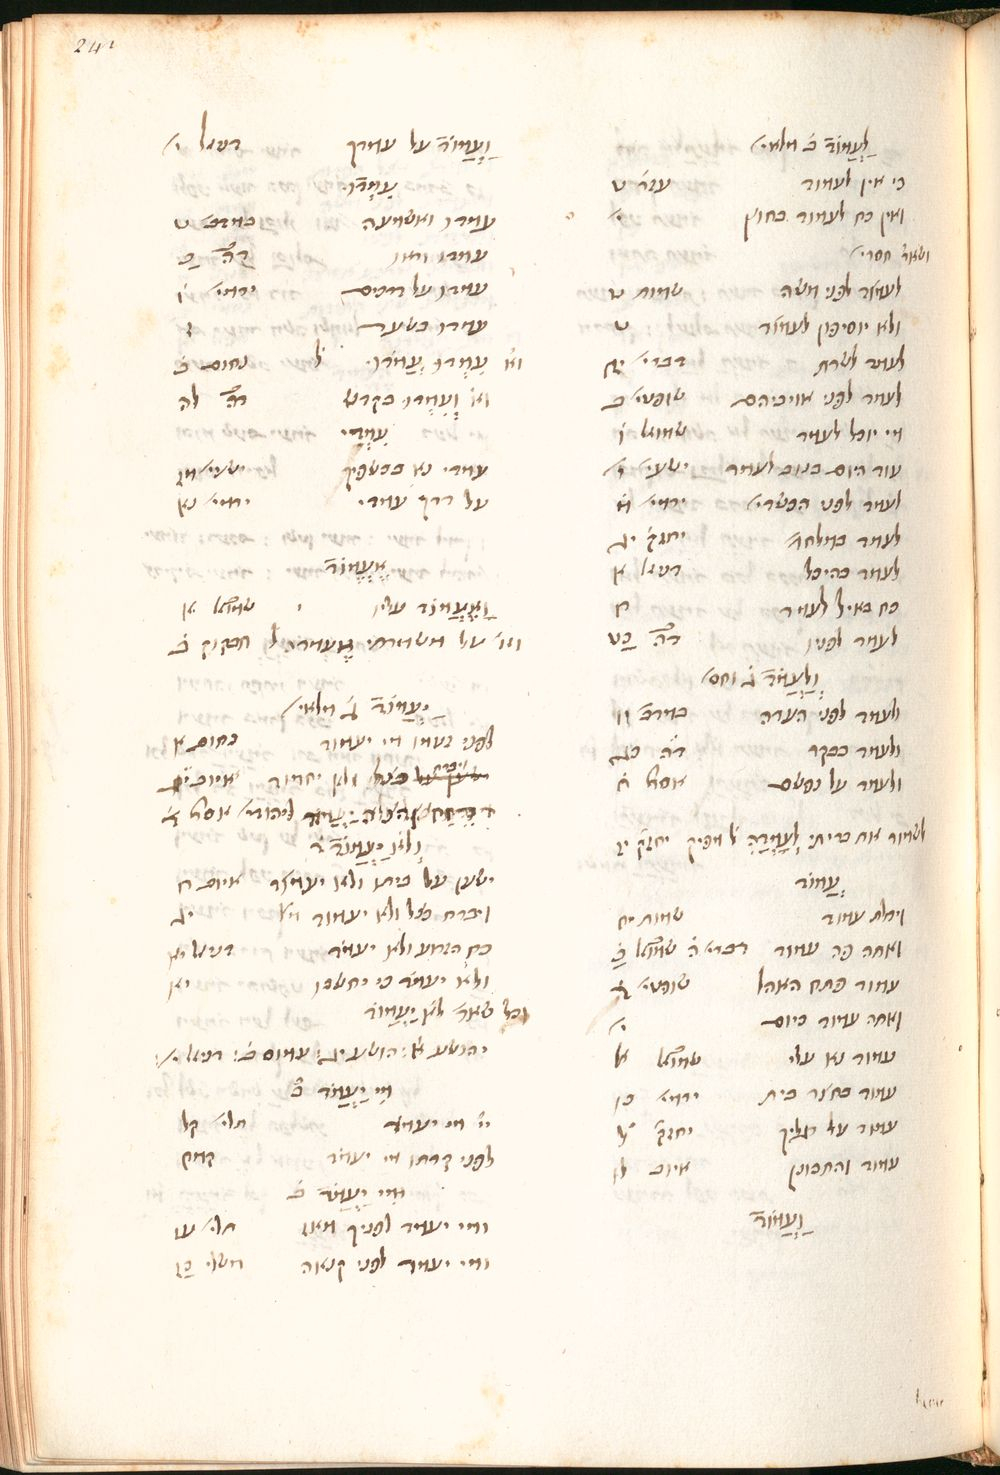 לַעֲמוֹד ב̇ מלאי׳
כי אין לעמוד עזרא ט
ואין כח לעמוד בחוץ י׳
ושאר׳ חסרי׳
לעמד לפני משה שמות ט
ולא יוסיפון לעמוד ט
לעמד לשרת דברי׳ יח
לעמד לפני אויביהם שופטי׳ ב
מי יוכל לעמד שמואל ו
עוד היום בנוב לעמד ישעי׳ י׳
לעמד לפני הכשדי׳ ירמי׳ מ
לעמד במלחמה יחזק׳ יג
לעמד בהיכל דניאל א
כח באיל לעמד ח
לעמד לפניו דה̇ כט
וְלַעֲמֹד ג̇ וחס׳
ולעמד לפני העדה במדב׳ יו
ולעמד בבקר דה̇ כג
ולעמד על נפשם אסת׳ ח
לשמור את בריתי לְעָמְדָהּ ל מפיק יחזק׳ יז
עֲמוֹד
ויחלת עמוד שמות יח
ואתה פה עמוד דברי׳ ה̇ שמואל ב
עמוד פתח האהל שופטי׳ ד
ואתה עמוד כיום י׳
עמוד נא עלי שמואל א
עמוד בחצר בית ירמי׳ כו
עמוד על רגליך יחזק׳ ל
עמוד והתבונן איוב לז
וַעֲמוֹד
וַעֲמוֹד על עמדך דניאל י׳
עִמְדוּ
עמדו ואשמעה במדב׳ ט
עמדו וראו דה̇ כ
עמדו על דרכים ירמי׳ ו
עמדו בשער ז
וא׳ עִמְדוּ עֲמֹדוּ ל נחום ב̇
וא׳ וְעִמְדוּ בקדש דה̇ לה
עִמְדִי
עמדי נא בכשפיך ישעי׳ מז
על דרך עמדי ירמי׳ נא
אֶעֱמוֹד
וְאֶעֱמוֹד עליו שמואל א
וא׳ על משמרתי אֶעמדה ל חבקוק ב̇
יַעֲמוֹד ג̇ מלאי׳
לפני זעמו מי יעמוד נחום א
ויברח כצל ולא יעמוד איוב י̇ד̇
ליהודי׳ אסת׳ ד̇
וְלֹא יַעֲמוֹד ד̇
ישען על ביתו ולא יעמוד איוב ח
ויברח כצל ולא יעמוד יד
כח הזרוע ולא יעמד דניאל יא
ולא יעמד כי יחשבו יא
וכל שאר לֹא יַעֲמוֹד
יהושע א: הושע יג: עמוס ב: דניאל י׳
מִי יַעֲמֹד ב̇
י׳י מי יעמד תלי׳ קל
לפני קרתו מי יעמד קמז
וּמִי יַעֲמֹד ב̇
ומי יעמד לפניך מאז תלי׳ עו
ומי יעמד לפני קנאה משלי כז